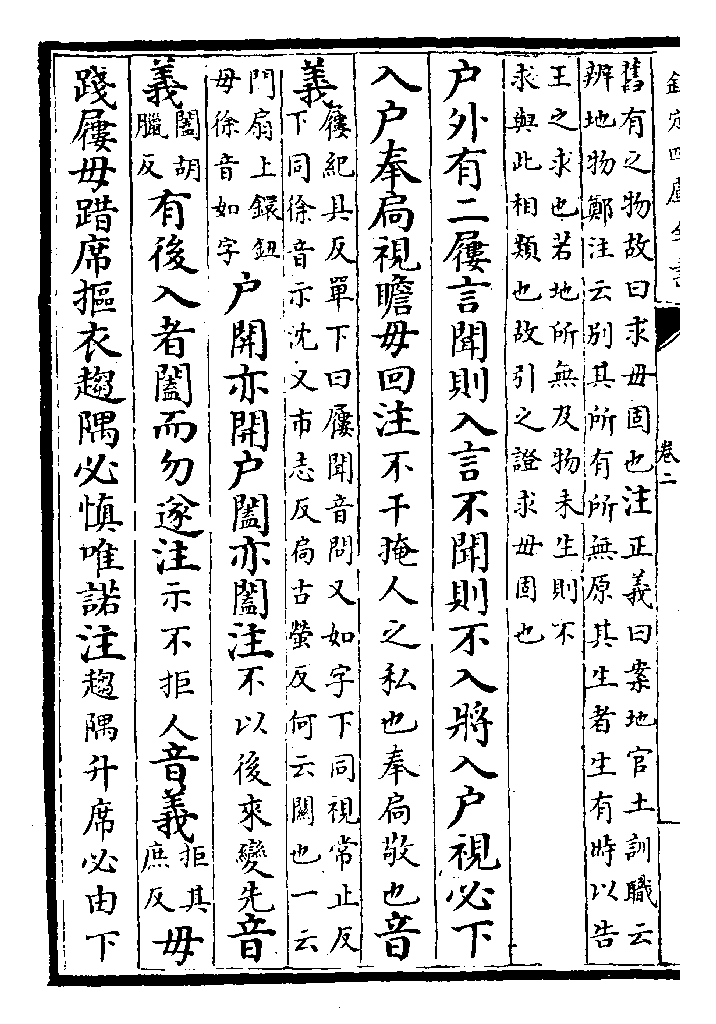 欽定四庫全書
卷二
舊有之物故曰求毋固也注正義曰案地官土訓職云
辨地物鄭注云別其所有所無原其生者生有時以告
王之求也若地所無及物未生則不
求與此相類也故引之證求毋固也
户外有二屨言聞則入言不聞則不入將入户視必下
入户奉扃視瞻毋回注不干掩人之私也奉扃敬也音
義屨紀具反單下曰屨聞音問又如字下同視常止反
下同徐音示沈又市志反扃古螢反何云關也一云
門扇上鐶鈕
毋徐音如字
户開亦開户闔亦闔注不以後來變先音
義闔胡
臘反
有後入者闔而勿遂注示不拒人音義拒其
庶反
毋
踐屨毋踖席摳衣趨隅必慎唯諾注趨隅升席必由下